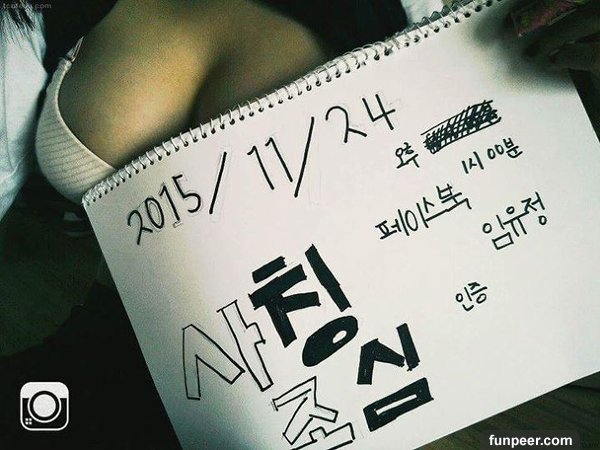 2015/11/24
오후 1시 00분
페이스북
임유정
인증
사칭
조심
funpeer.com